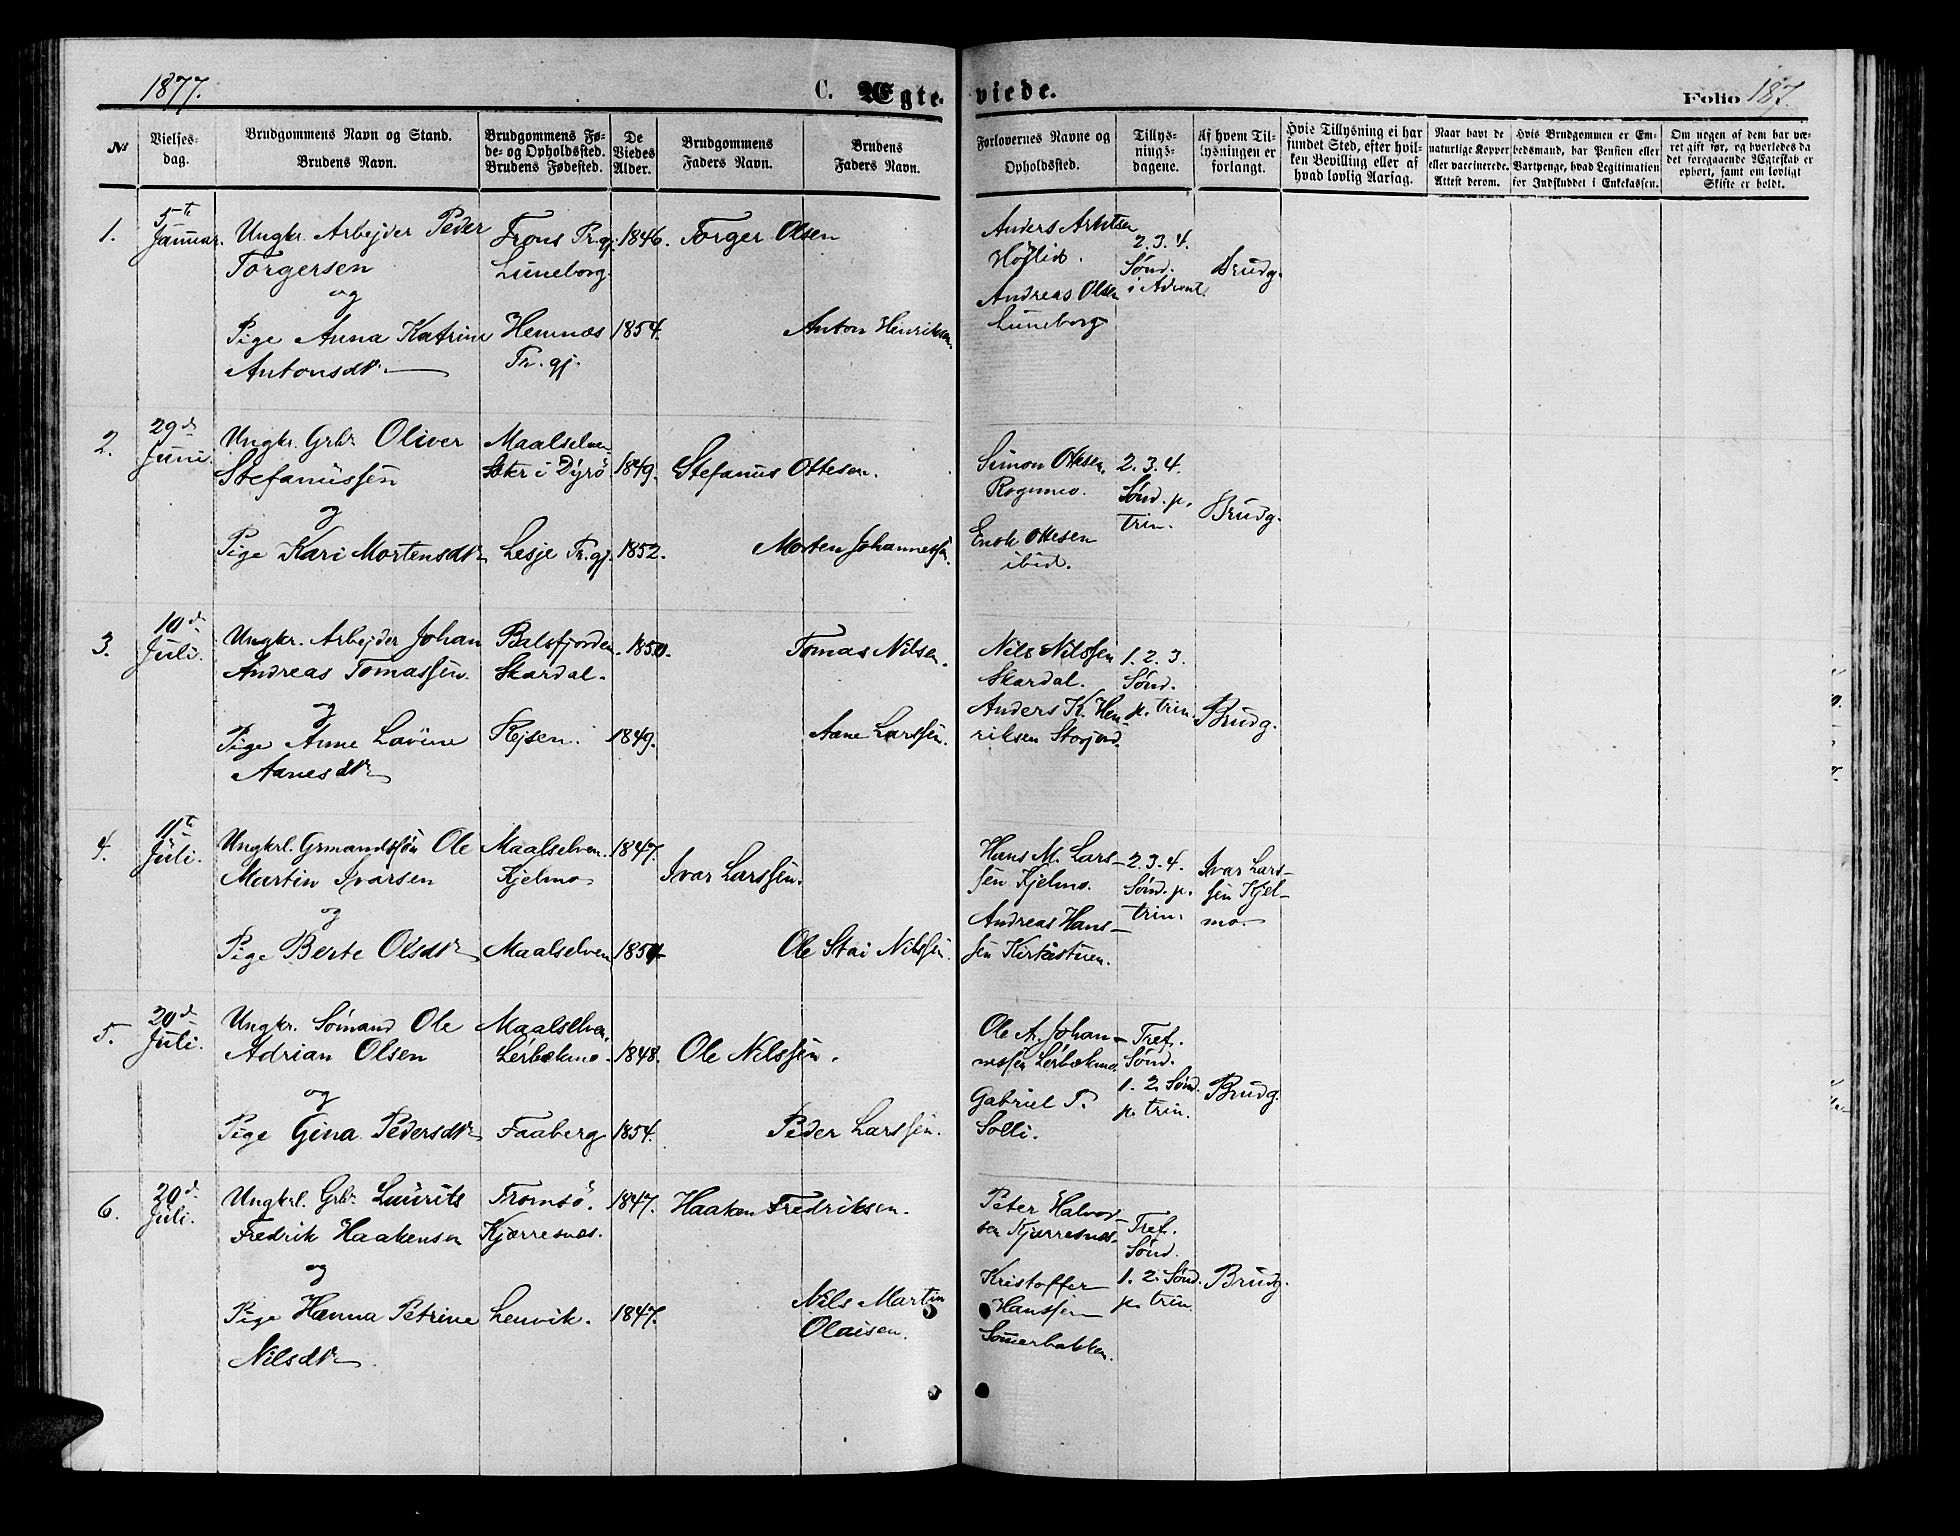 1877.
C. Ægteviede.
Folio 187.
No
Vielsesdag.
Brudgommens Navn og Stand.
Brudens Navn.
Brudgommens Føde- og Opholdssted.
Brudens Fødested.
De Viedes Alder.
Brudgommens Faders Navn.
Brudens Faders Navn.
Forlovernes Navne og Opholdssted.
Tillysningsdagene.
Af hvem Tillysningen er forlangt.
Hvis Tillysning ei har fundet Sted, efter hvilken Bevilling eller af hvad lovlig Aarsag.
Naar havt de naturlige Kopper eller vaccinerede. Attest derom.
Hvis Brudgommen er Embedsmand, har Pension eller Vartpenge, hvad Legitimation for Indskuddet i Enkekassen.
Om nogen af dem har været gift før, og hvorledes da det foregaaende Ægteskab er ophørt, samt om lovligt Skifte er holdt.
1.
5te Januar.
Ungkr. Arbejder Peder
Torgersen
og
Pige Anna Katrine
Antonsdtr
Trons Prgj.
Luneborg.
Hemnæs
Pr. gj.
1846.
1854.
Torger Olsen
Anton Henriksen.
Anders Arntsen
Højlid.
Andreas Olsen
Luneborg
2. 3. 4.
Sønd.
i Advent.
Brudg.
2.
29de Juni
Ungkr. Grbr Oliver
Stefanussen
og
Pige Kari Mortensdtr
Maalselven
Sæter i Dyrø
Lesje Pr.gj.
1849.
1852.
Stefanus Ottesen.
Morten Johannessen.
Simon Ottesen,
Rognmo.
Enok Ottesen
ibid.
2. 3. 4.
Sønd. p.
trin.
Brudg.
3.
10de Juli.
Ungkr. Arbejder Johan
Andreas Tomassen.
og
Pige Anne Lavine
Aanesdtr
Balsfjorden.
Skardal.
Rejsen.
1850.
1849.
Tomas Nilsen.
Aane Larssen.
Nils Nilssen
Skardal.
Anders K. Hen-
riksen Storjord.
1. 2. 3.
Sønd.
p. trin.
Brudg.
4.
11te Juli.
Ungkrl. Grmandssøn Ole
Martin Ivarsen
og
Pige Berte Olsdtr
Maalselven.
Kjelmo
Maalselven
1847.
Ivar Larssen.
Ole Stai Nilssen.
Hans M. Lars-
sen Kjelmo.
Andreas Hans-
sen Kirkestuen.
2. 3. 4.
Sønd. p.
trin.
Ivar Lars-
sen Kjel-
mo.
5.
20de Juli.
Ungkr. Sømand Ole
Adrian Olsen
og
Pige Gina Pedersdtr
Maalselven,
Lerbækmo.
Faaberg
1848.
1854.
Ole Nilssen.
Peder Larssen.
Ole A. Johan-
nessen Lerbækmo.
Gabriel P.
Solli.
Tref.
Sønd.
1. 2. Sønd.
p. trin.
Brudg.
6.
20de Juli.
Ungkrl. Grbr Laurits
Fredrik Haakensen
og
Pige Hanna Petrine
Nilsdtr
Tromsø.
Kjærresnæs.
Lenvik.
1847.
1847.
Haaken Fredriksen.
Nils Martin
Olaisen.
Peter Halvor-
sen Kjærresnæs.
Kristoffer
Hanssen
Somerbakken.
Tref.
Sønd.
1. 2. Sønd.
p. trin.
Brudg.